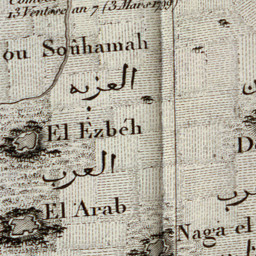 13 Ventôse an 7 (3 Mars 1799)
ou Soûhamah
العزبه
El Ezbéh
العرب
El Arab
Naga el